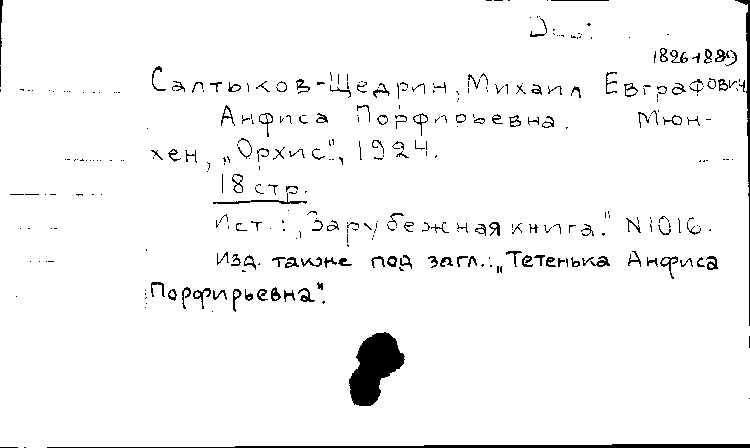 1826-1889
Салтыков-Щедрин, Михаил Евграфович.
Анфиса Порфирьевна. Мюн-
хен, „Орхис", 1924.
18 стр.
Ист.: „Зарубежная книга." N1016.
Изд. также под загл.: „Тетенька Анфиса
Порфирьевна".